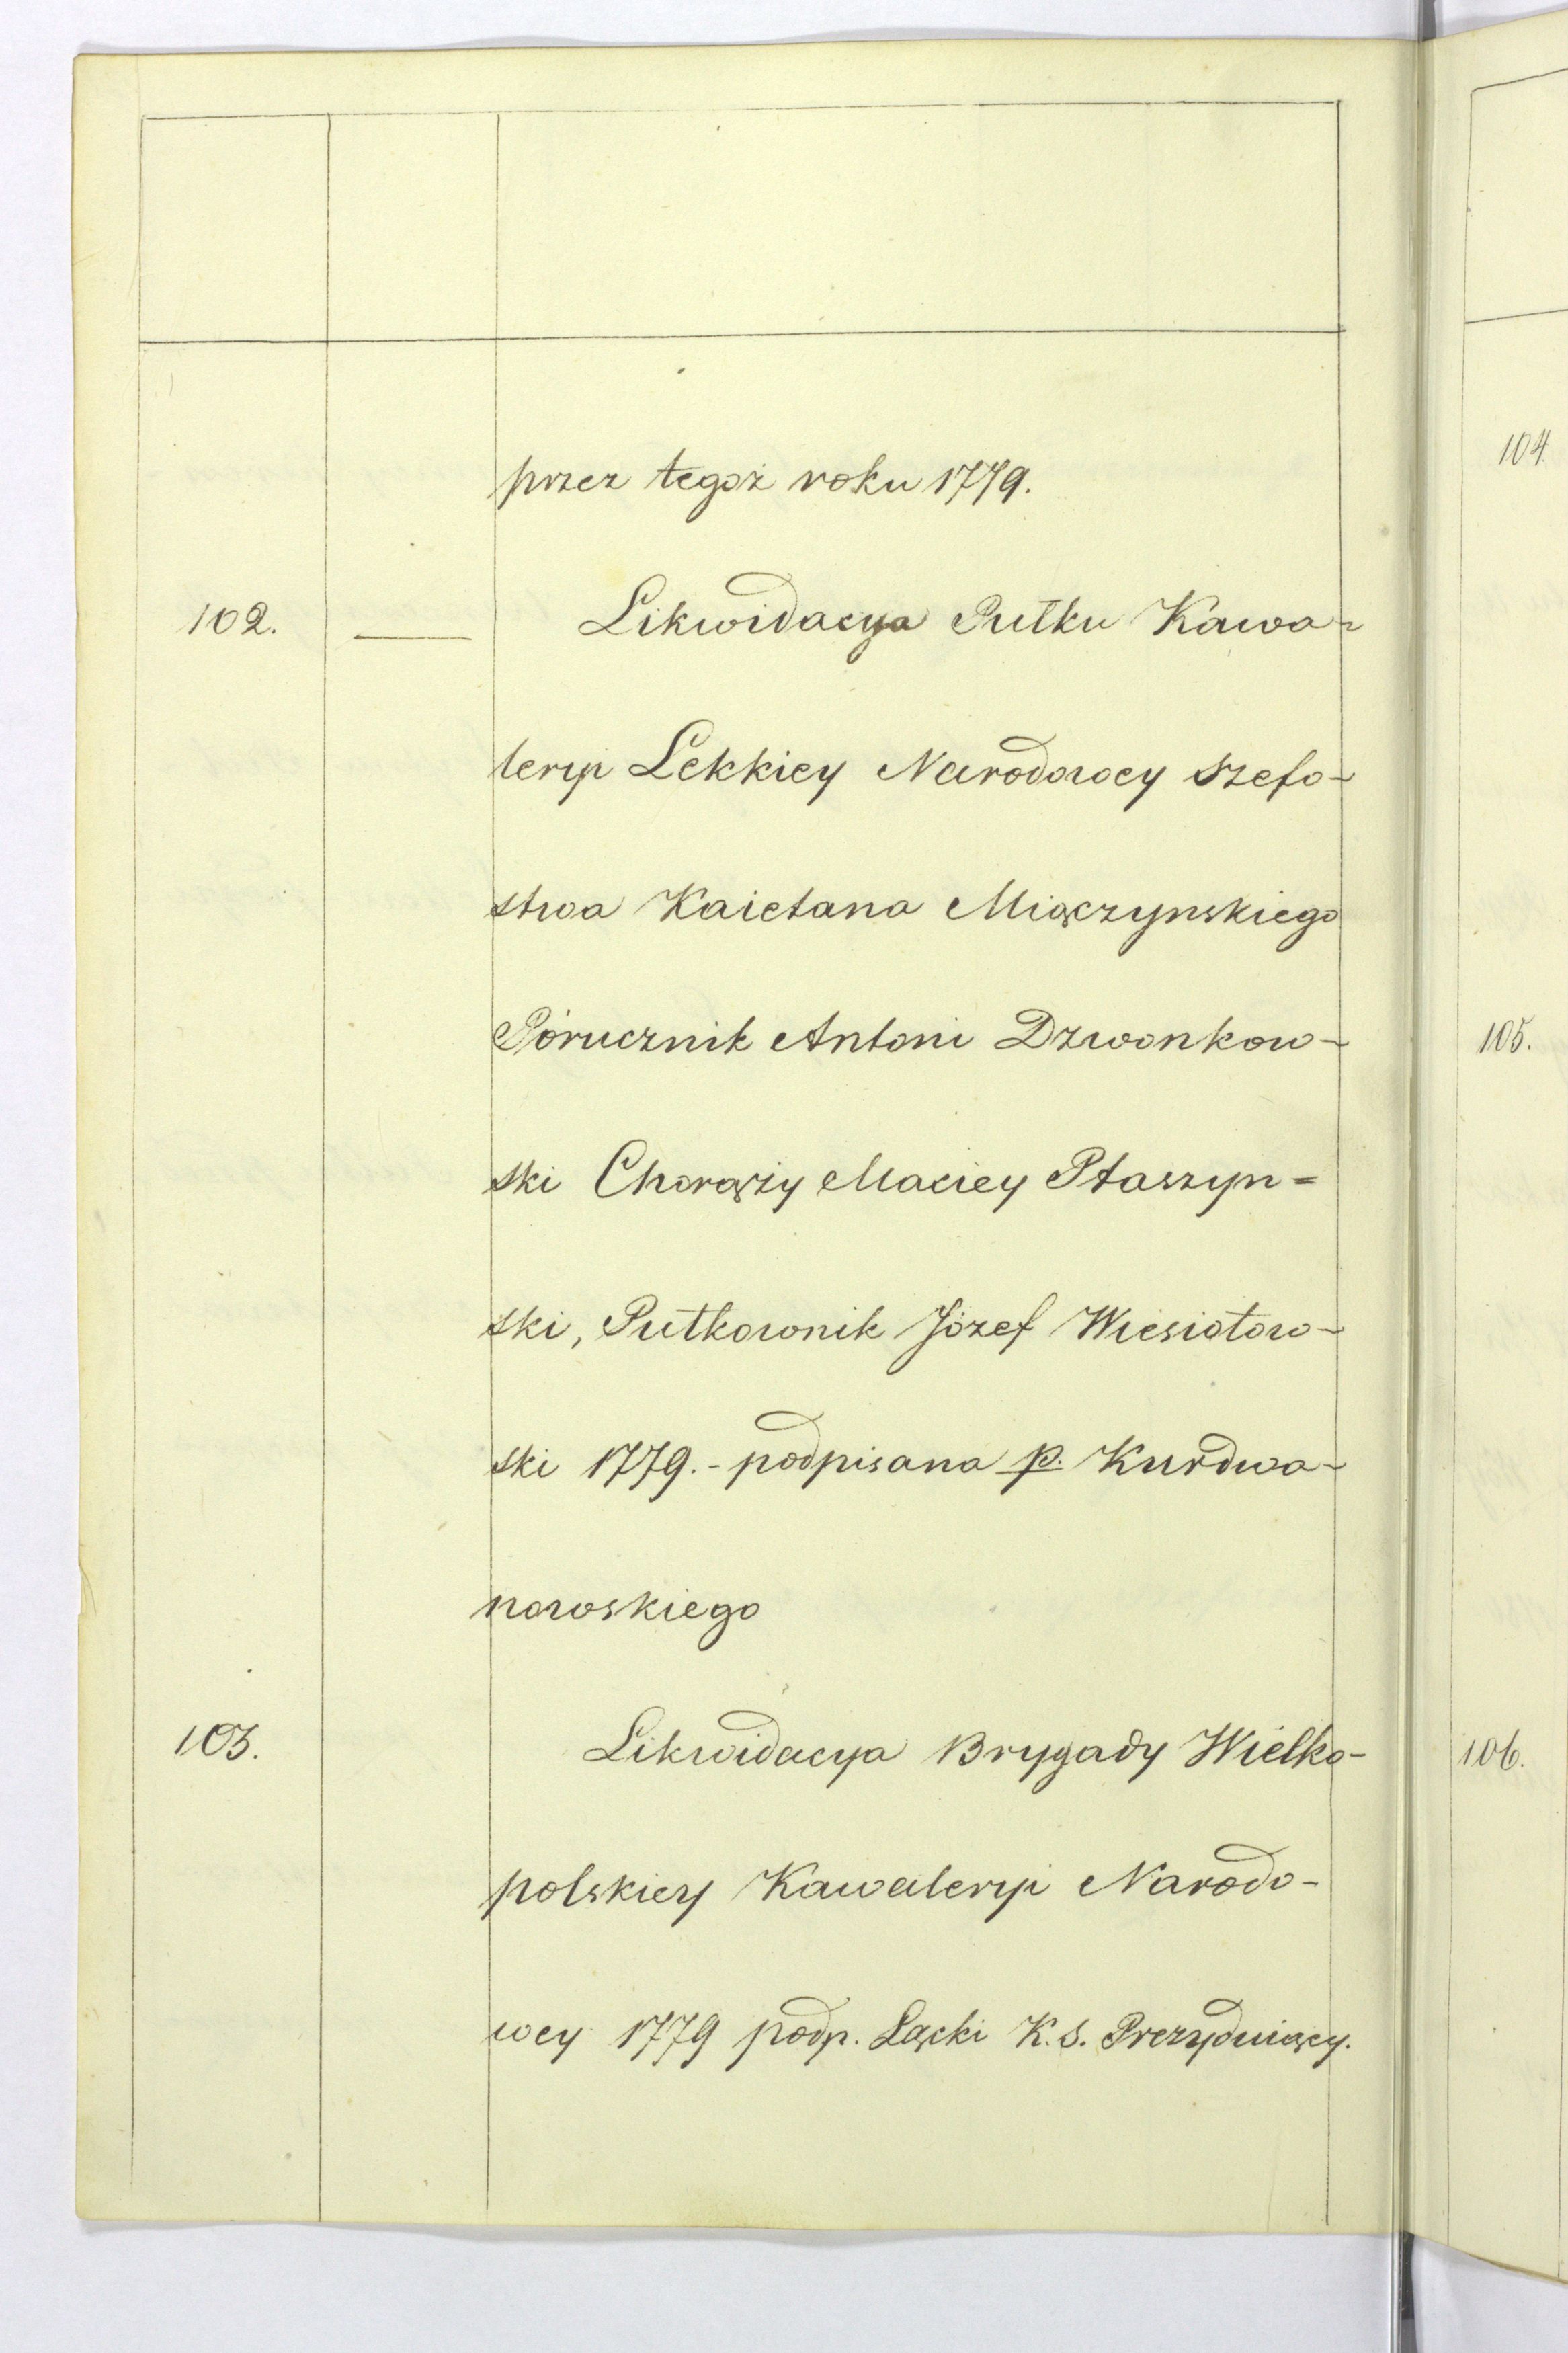 przez tegoż roku 1779.
102. — Likwidacya Pułku Kawa-
leryi Lekkiey Narodowey Szefo-
stwa Kaietana Miączynskiego
Pórucznik Antoni Dzwonkow-
ski Chorąży Maciey Ptaszyn=
ski, Pułkownik Józef Wiesiołow-
ski 1779. - podpisana p. Kurdwa-
nowskiego
103. Likwidacya Brygady Wielko-
polskiey Kawaleryi Narodo-
wey 1779 podp. Łącki K. S. Prezyduiący.
104.
105.
106.